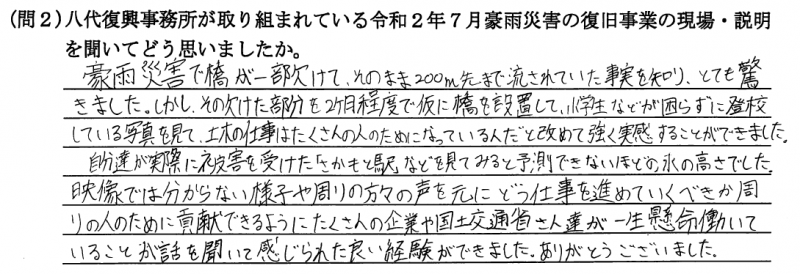 (問2)八代復興事務所が取り組まれている令和2年7月豪雨災害の復旧事業の現場・説明
を聞いてどう思いましたか。
豪雨災害で橋が一部欠けて、そのまま200m先まで流されていた事実を知り、とても驚
きました。しかし、その欠けた部分を2ケ月程度で仮に橋を設置して、小学生などが困らずに登校
している写真を見て、土木の仕事はたくさんの人のためになっているんだと改めて強く実感することができました。
自分達が実際に被害を受けたさかもと駅などを見てみると予測できないほどの水の高さでした。
映像では分からない様子や周りの方々の声を元にどう仕事を進めていくべきか周
りの人のために貢献できるようにたくさんの企業や国土交通省さん達が一生懸命働いて
いることが話を聞いて感じられた良い経験ができました。ありがとうございました。